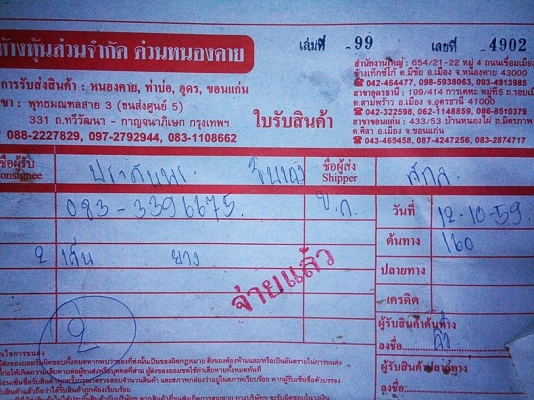 ห้างหุ้นส่วนจำกัด ด่วนหนองคาย
เล่มที่ 99 เลขที่ 4902
การรับส่งสินค้า : หนองคาย, ท่าบ่อ, อุดร, ขอนแก่น
ขา : พุทธมณฑลสาย 3 (ขนส่งศูนย์ 5)
331 ถ.ทวีวัฒนา - กาญจนาภิเษก กรุงเทพฯ
088-2227829, 097-2792944, 083-1108662
ใบรับสินค้า
สำนักงานใหญ่ : 654/21-22 หมู่ 4 ถนนเชื่อมเมือง
ข้างเท็กซ์โก้ ต.มีชัย อ.เมือง จ.หนองคาย 43000
042-464477, 098-5938063, 093-4913985
สาขาอุดรธานี : 199/414 การเคหะ หมู่ที่5 ถ.รอบเมือง
ต.สามพร้าว อ.เมือง จ.อุดรธานี 41000
042-322598, 062-1148859, 086-8510379
สาขาขอนแก่น : 433/53 บ้านหนองไผ่ ถ.มิตรภาพ
ต.ศิลา อ.เมือง จ.ขอนแก่น
043-465458, 087-4247256, 083-2874717
ชื่อผู้รับ
Consignee
ชื่อผู้ส่ง
Shipper
083-3396675.
วันที่ 12-10-59
2 เส้น ยาง
ต้นทาง 160
ปลายทาง
จ่ายแล้ว
เครดิต
2
ผู้รับสินค้าต้นทาง
ลงชื่อ
ผู้รับสินค้าปลายทาง
ลงชื่อ